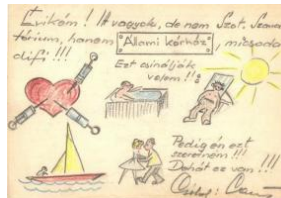 Évikém! Itt vagyok, de nem Szot. Szana-
tórium, hanem "Állami kórház", micsoda
difi!!!
Ezt csinálják
velem!!
Pedig én ezt
szeretném!!!
Dehát ez van!!!